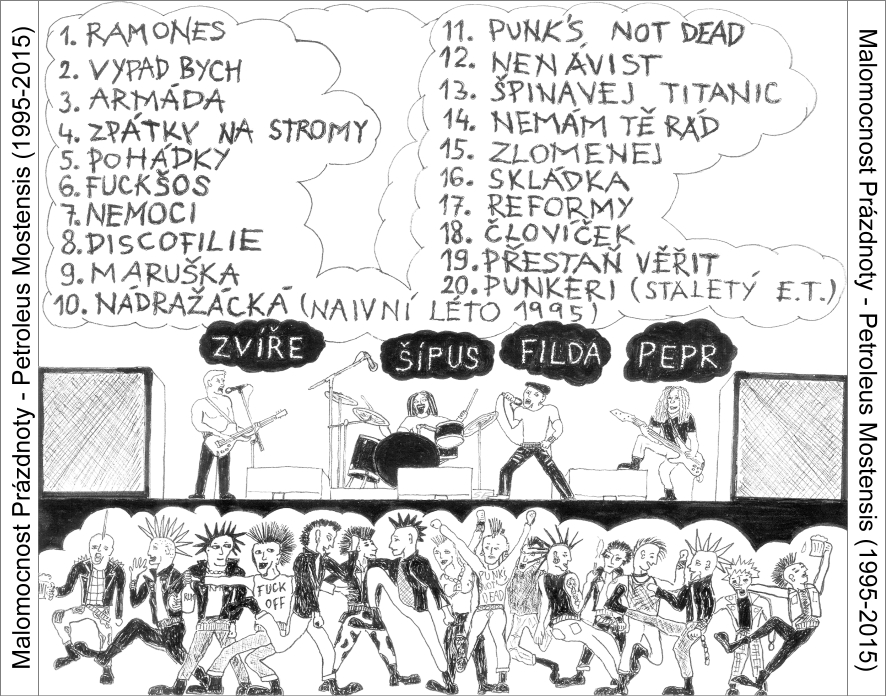 Malomocnost Prázdnoty - Petroleus Mostensis (1995-2015)
1. RAMONES
2. VÝPAD BYCH
3. ARMÁDA
4. ZPÁTKY NA STROMY
5. POHÁDKY
6. FUCKŠOS
7. NEMOCI
8. DISCOFILIE
9. MARUŠKA
10. NÁDRAŽÁCKÁ (NAIVNÍ LÉTO 1995)
11. PUNK'S NOT DEAD
12. NENÁVIST
13. ŠPINAVEJ TITANIC
14. NEMÁM TĚ RÁD
15. ZLOMENEJ
16. SKLÁDKA
17. REFORMY
18. ČLOVÍČEK
19. PŘESTAŇ VĚŘIT
20. PUNKEŘI (STALETÝ E.T.)
ZVÍŘE
ŠÍPUS
FILDA
PEPR
FUCK
OFF
PUNK
NOT
DEAD
RUM
Malomocnost Prázdnoty - Petroleus Mostensis (1995-2015)